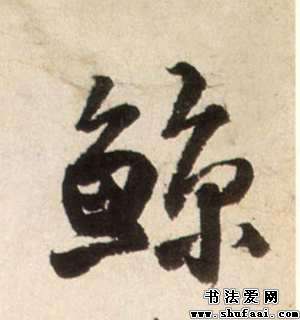 鲸
书法爱网
www.shufaai.com